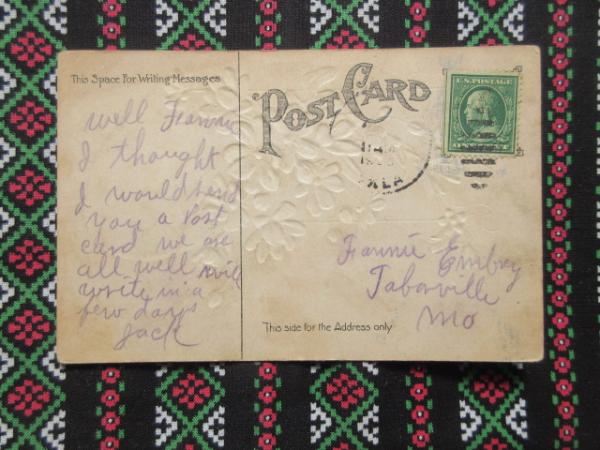 This Space For Writing Messages
POST CARD
U.S. POSTAGE
OKLA
well Fannie
I thought
I would send
you a Post
card we are
all well will
write in a
few days
Jack
Fannie Embry
Taborville
Mo
This side for the Address only